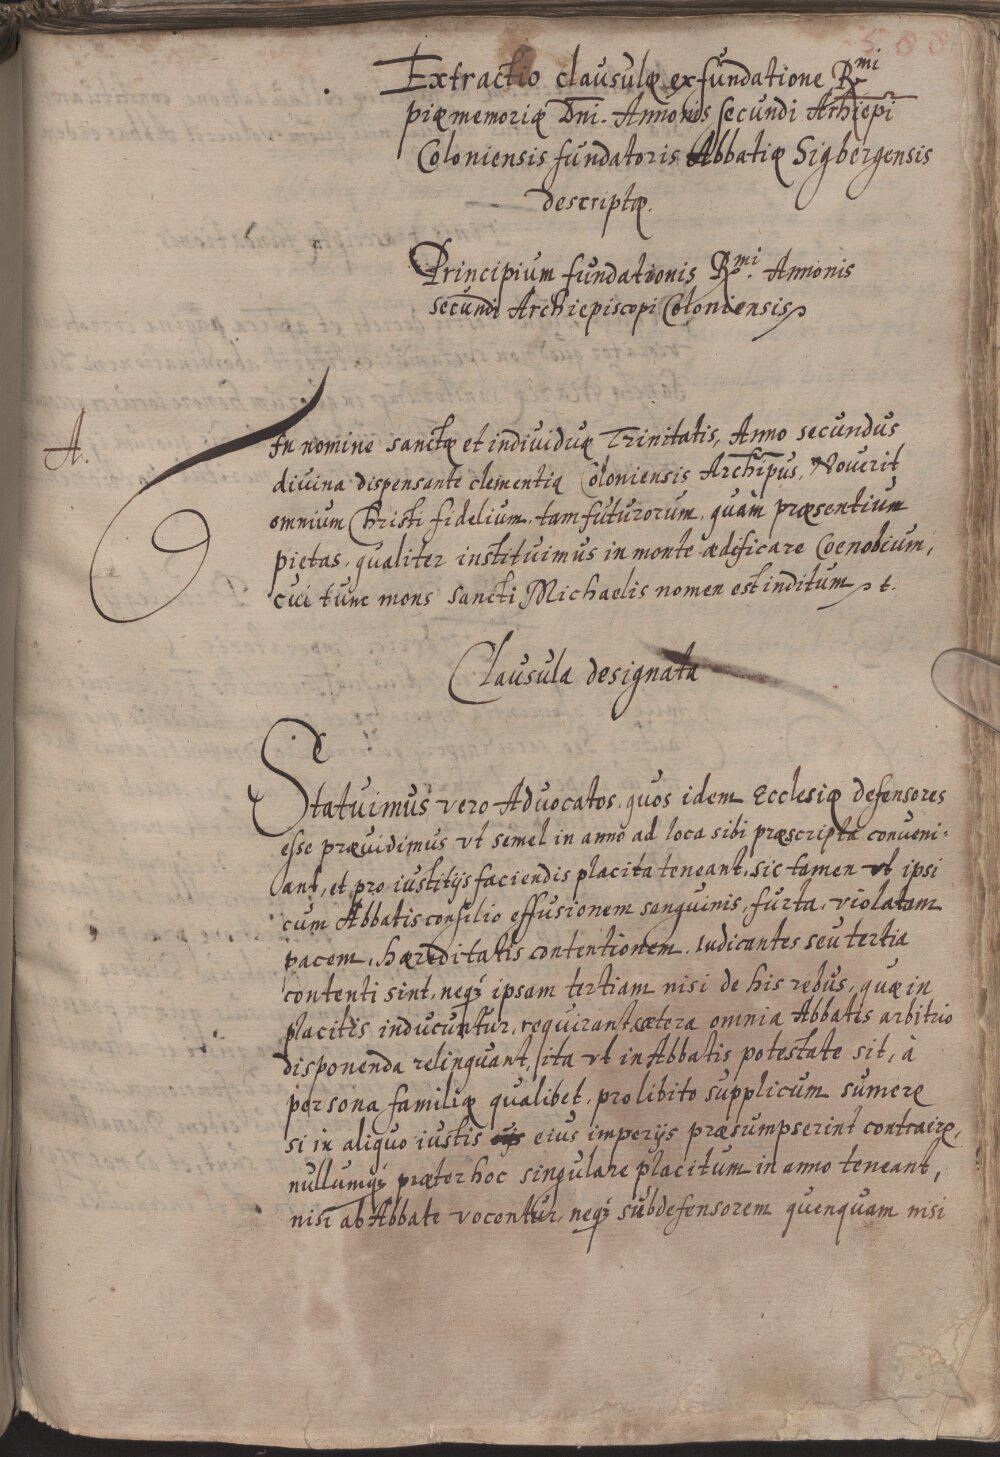 508
Extractio clausulæ ex fundatione R.mi
piæ memoriæ Dni. Annonis secundi Archiepi
Coloniensis fundatoris Abbatiæ Sigbergensis
descriptæ.
Principium fundationis R.mi Annonis
secundi Archiepiscopi Coloniensis
A.
In nomine sanctæ et individuæ Trinitatis, Anno secundus
divina dispensante clementia Coloniensis Archipus, Noverit
omnium Christi fidelium, tam futurorum, quàm præsentium
pietas, qualiter instituimus in monte ædificare Coenobium,
cui tunc mons sancti Michaelis nomen est inditum et.
Clausula designata
Statuimus vero Advocatos, quos idem Ecclesiæ defensores
esse prævidimus vt semel in anno ad loca sibi præscripta conveni-
ant, et pro iustitijs faciendis placita teneant, sic tamen vt ipsi
cum Abbatis consilio effusionem sanguinis, furta, violatam
pacem, hæreditatis contentionem, Iudicantes seu tertia
contenti sint, neqꝫ ipsam tertiam nisi de his rebus, quæ in
placitis inducuntur, requirant, cætera omnia Abbatis arbitrio
disponenda relinquant, ita vt in Abbatis potestate sit, à
persona familiæ qualibet, pro libito supplicum sumere
si in aliquo iustis eius imperijs præsumpserint contraire,
nullumqꝫ præter hoc singulare placitum in anno teneant,
nisi ab Abbate vocentur, neqꝫ subdefensorem quenquam nisi